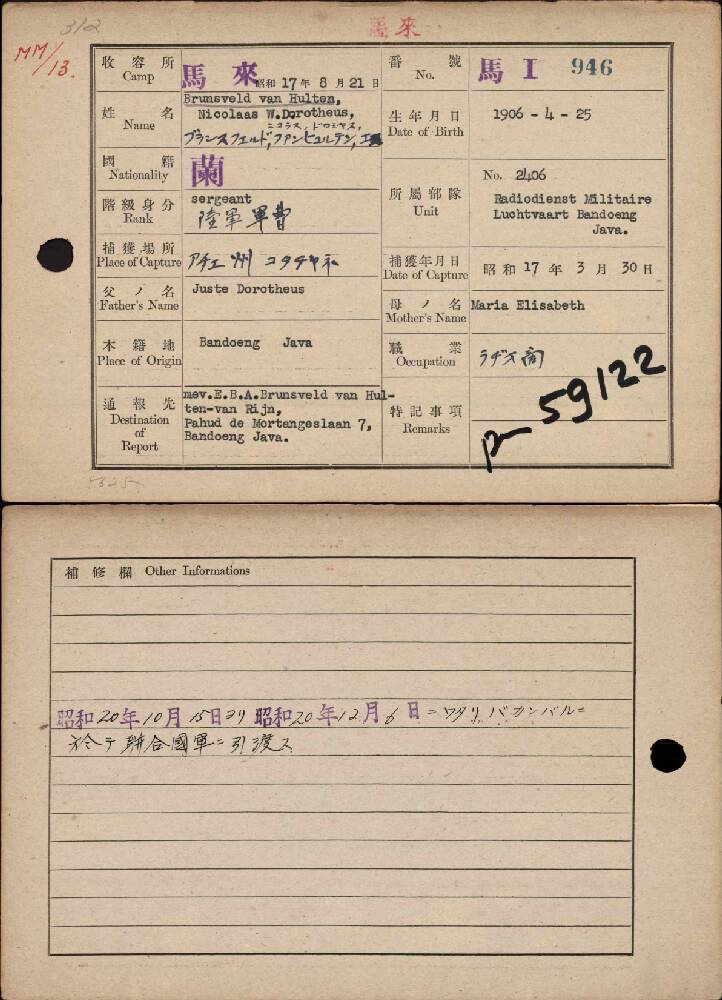 312
馬來
MM/13.
收容所 Camp 馬來 昭和 17 年 8 月 21 日
番號 No. 馬 I 946
姓名 Name Brunsveld van Hulten,
Nicolaas W.Dorotheus,
ニコラス, ドロシヤス,
ブランスフェルド,ファンヒュルテン,
生年月日 Date of Birth 1906 - 4 - 25
國籍 Nationality 蘭
階級身分 Rank sergeant
陸軍軍曹
所屬部隊 Unit No. 2406
Radiodienst Militaire
Luchtvaart Bandoeng
Java.
捕獲場所 Place of Capture アチエ州 コタチヤネ
捕獲年月日 Date of Capture 昭和 17 年 3 月 30 日
父ノ名 Father's Name Juste Dorotheus
母ノ名 Mother's Name Maria Elisabeth
本籍地 Place of Origin Bandoeng Java
職業 Occupation ラヂオ商
通報先 Destination of Report mev.E.B.A.Brunsveld van Hul-
ten-van Rijn,
Pahud de Mortangeslaan 7,
Bandoeng Java.
特記事項 Remarks
59122
補修欄 Other Informations
昭和20年10月15日ヨリ 昭和20年12月6日ニワタリ パカンバルニ
於テ聯合國軍ニ引渡ス